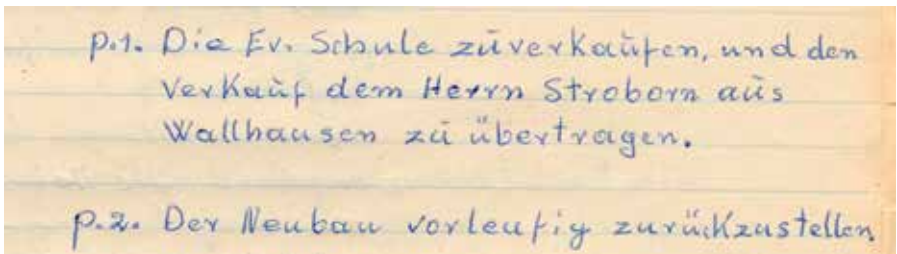 p.1. Die Ev. Schule zūverkaūfen, und den
Verkaūf dem Herrn Stroborn aūs
Wallhausen zū übertragen.
p.2. Der Neubau vorleufig zurückzustellen